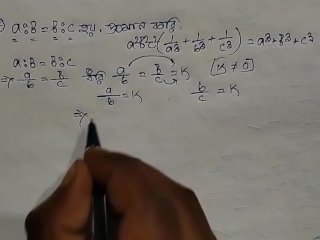 a:b = b:c হয়, প্রমাণ করি,
a²b²c²(1/a³ + 1/b³ + 1/c³) = a³+b³+c³
a:b = b:c
⇒ a/b = b/c ধরি a/b = b/c = K [K ≠ 0]
a/b = K . b/c = K
⇒